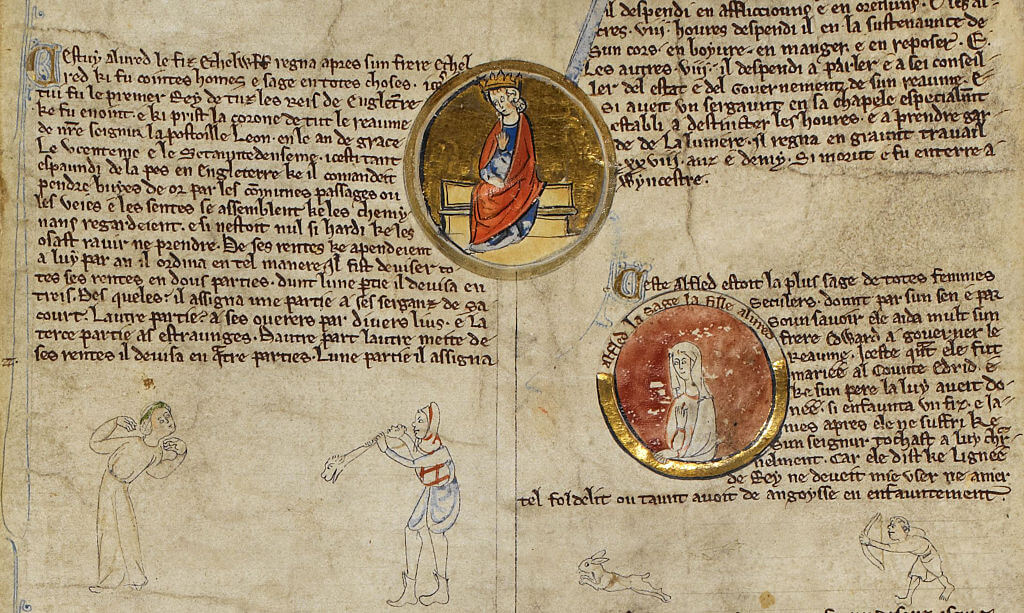 Cestuy Alured le fiz Ethelwlf regna apres sun frere Ethel
red ki fu cointes homes e sage en totes choses.
fu le premer Rey de tuz les Reis de Engletere
ke fu enoint e ki prist la corone de tut le reaume
de nre seignur la postoille Leon. en le an de grace
Le Vcentenie e le Setauntedenseme. icesti tant
espaundi de la pes en Engleterre ke il comandeit
pendre buyes de or par les communes passages ou
les veies e les sentes se assemblent ke les chemy-
nans regardeient. e si nestoit nul si hardi ke les
osast ravir ne prendre. De ses rentes ke apendeient
a luy par an il ordina en tel manere. Il fist deviser to-
tes ses rentes en dous parties. dunt lune ptie il devisa en
treis. Des queles: il assigna une partie a ses serganz de sa
court. Lautre partie: a ses overers par divers lius. e la
terce partie as estraunges. Dautre part lautre meite de
ses rentes il devisa en qtre parties. Lune partie il assigna
il despendi en affliccioune e en oreiuns.
res. viij. houres despendi il en la sustenaunce de
sun cors. en boyure. en manger. e en reposer. E
Les autres. viij. il despendi a parler e a sei conseil-
ler del estat e del governement de sun reaume. E
Si aveit un sergaunt en sa chapele especialmt
establi a destincter les houres. e a prendre gar-
de de la lumere. Il regna en graunt travail
xxviij. anz e demy. Si morut e fu enterre a
Wyncestre.
Ceste Alfled estoit la plus sage de totes femmes
Seculers. dount par sun sen e par
Soun savoir ele aida mult sun
frere Edward a governer le
Reaume. Iceste qnt ele fut
mariee al Counte Edrid. e
ke sun pere la luy aveit do-
nee. si enfaunta un fiz. e ja-
mes apres ele ne suffri ke
Sun seignur tochast a luy chr-
nelment. Car ele dist ke lignee
de Rey ne deveit mie user ne amer
tel fol delit ou taunt avoit de angoysse en enfauntement.
alfled la sage la fille alured